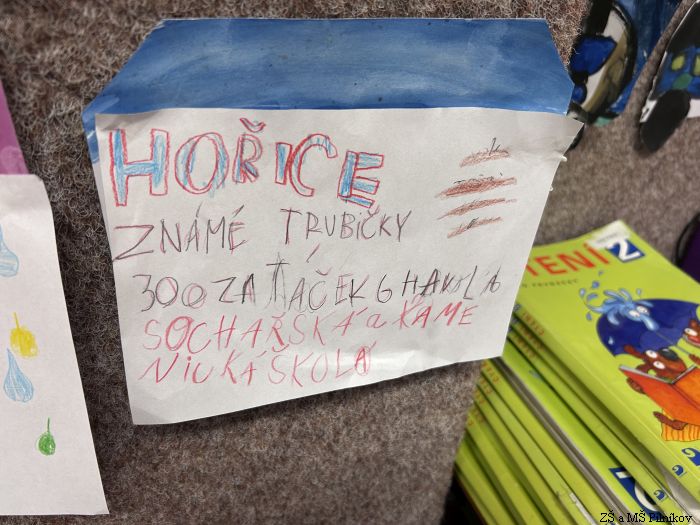 HOŘICE
ZNÁMÉ TRUBIČKY
300 ZATÁČEK G HAVLA
SOCHAŘSKÁ a KAME
NICKÁ ŠKOLA
TENÍ 2
ZŠ a MŠ Pilníkov